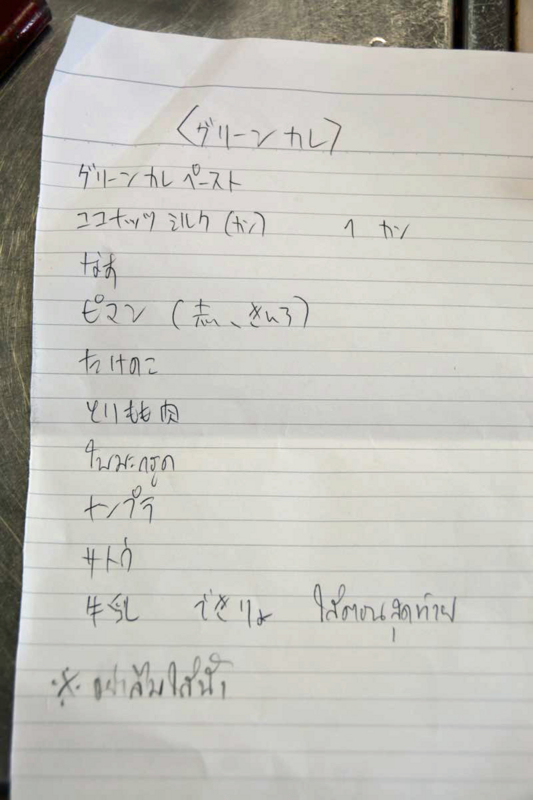 〈グリーンカレ〉
グリーンカレペースト
ココナッツミルク(カン) 1 カン
なす
ピマン (赤、きいろ)
たけのこ
とりもも肉
ใบมะกรูด
ナンプラ
サトウ
牛乳 てきりょ ใส่ตอนสุดท้าย
※ อย่าลืมใส่น้ำ